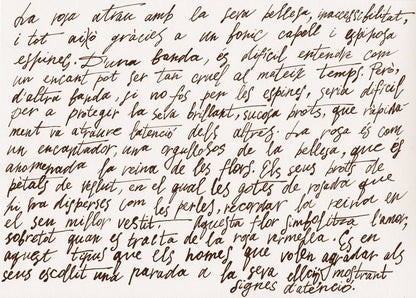 La rosa atrau amb la seva bellesa, inaccessibilitat,
i tot això gràcies a un bonic capell i espinosa
espines. D'una banda, és difícil entendre com
un encant pot ser tan cruel al mateix temps. Però,
d'altra banda, si no fos per les espines, seria difícil
per a protegir la seva brillant, sucosa prots, que ràpida
ment va atraure l'atenció dels altres. La rosa és com
un encantador, una orgullosos de la bellesa, que és
anomenada la reina de les flors. Els seus prots de
pètals de vellut, en el qual les gotes de rosada que
hi ha disperses com les perles, recordar la reina en
el seu millor vestit. Aquesta flor simbolitza l'amor,
sobretot quan es tracta de la rosa vermella. És en
aquest tipus que els homes que volen agradar als
seus escollit una parada a la seva elecció, mostrant
signes d'atenció.